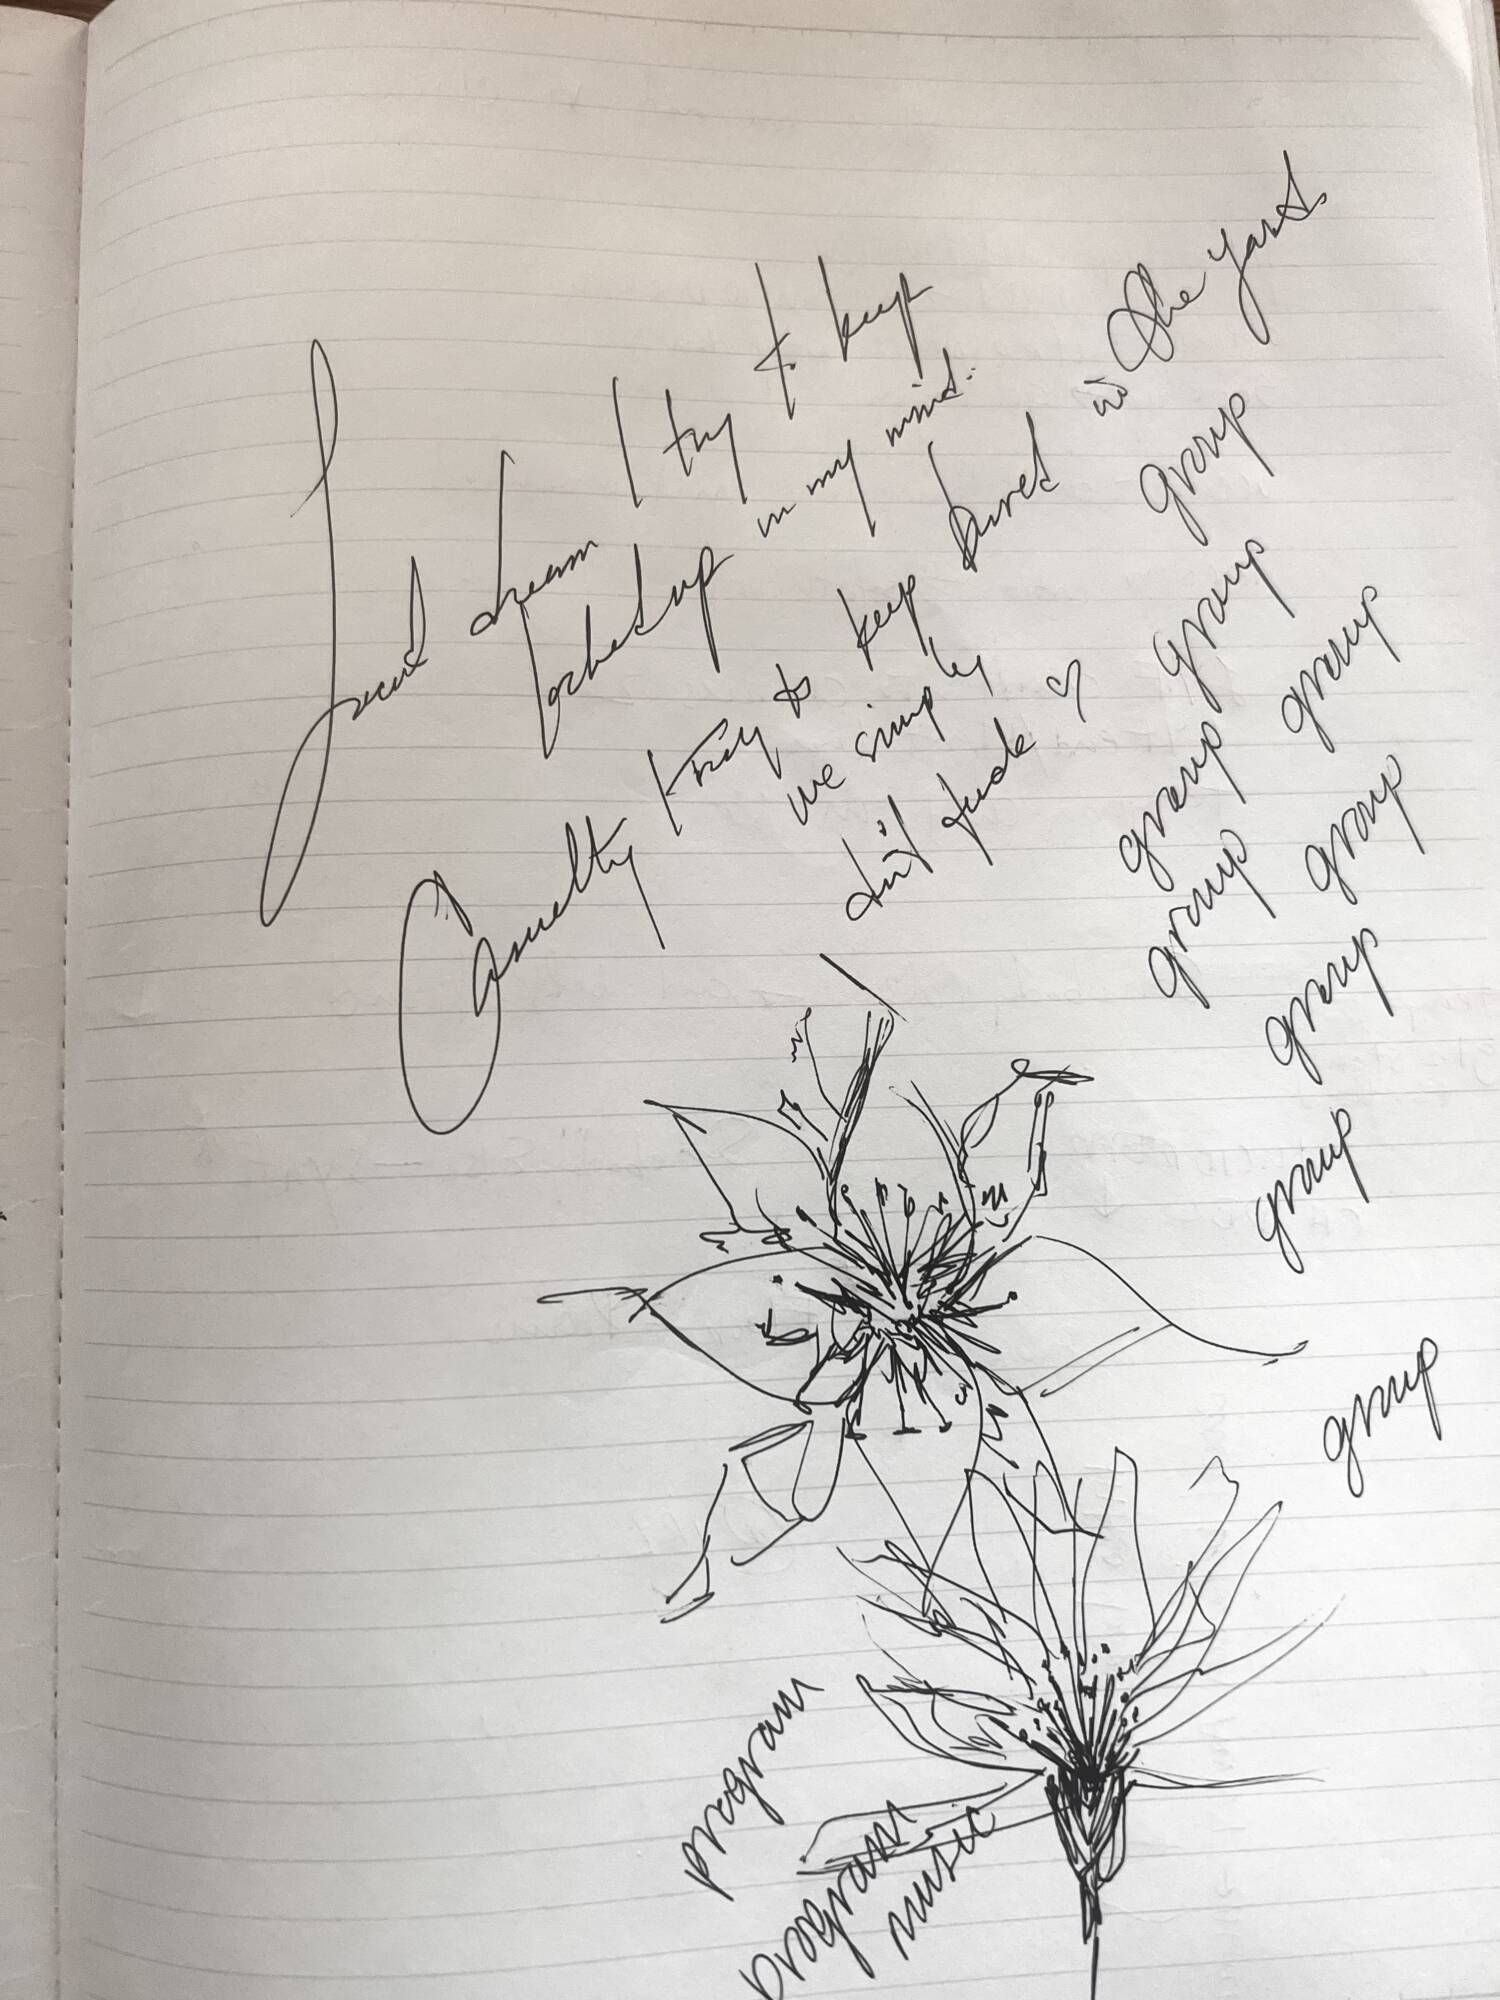 Secret dream I try to keep
locked up in my mind.
Cruelty I try to keep buried in the yard
we simply
don't
group
group
group
group
group
group
group
group
group
program
program
music